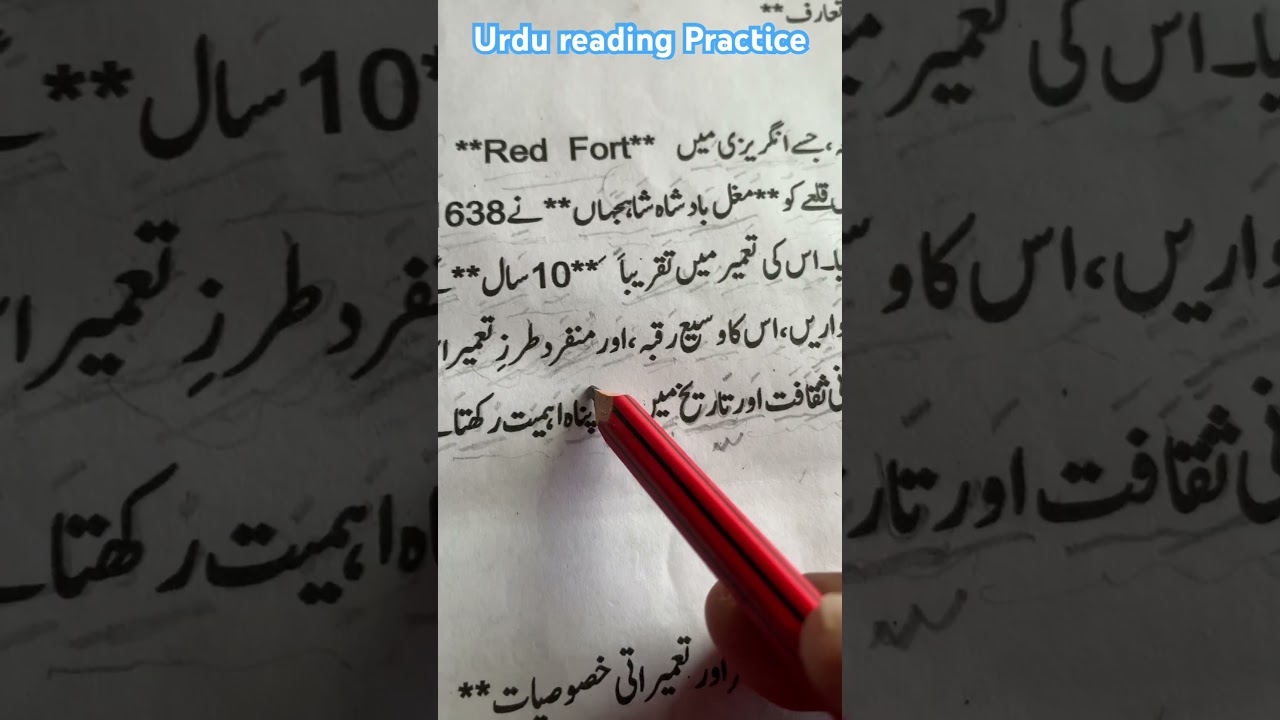 تعارف**
Urdu reading Practice
، جسے انگریزی میں **Red Fort**
قلعے کو **مغل بادشاہ شاہجہاں** نے 1638
یا۔ اس کی تعمیر میں تقریباً **10 سال**
واریں، اس کا وسیع رقبہ، اور منفرد طرزِ تعمیر
ثقافت اور تاریخ میں پناہ اہمیت رکھتا
اور تعمیراتی خصوصیات**